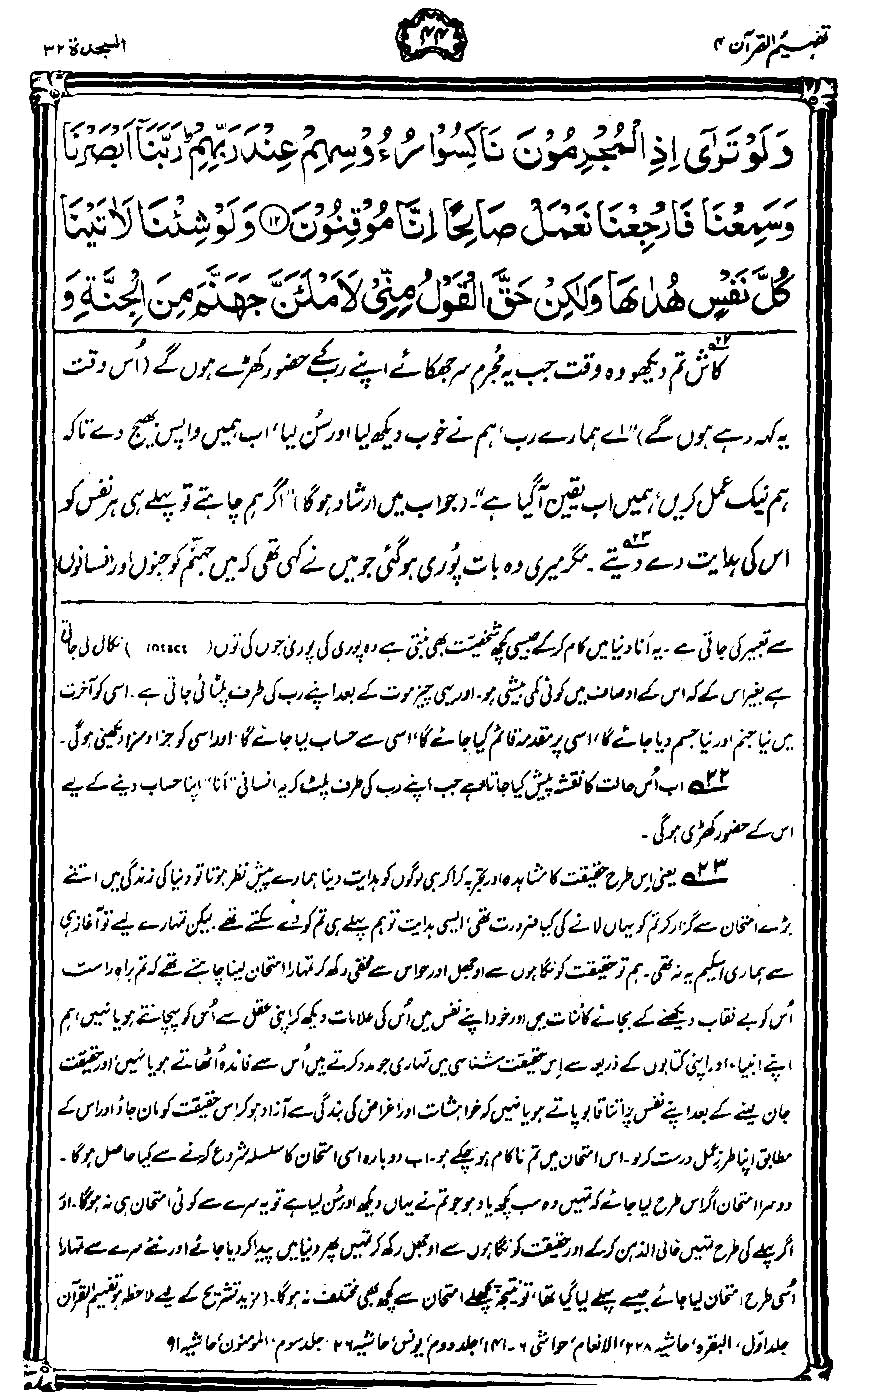 تفہیم القرآن ۴
۴۴
السجدة ۳۲
وَلَوْ تَرٰٓى اِذِ الْمُجْرِمُوْنَ نَاكِسُوْا رُءُوْسِهِمْ عِنْدَ رَبِّهِمْ ۭ رَبَّنَآ اَبْصَرْنَا
وَسَمِعْنَا فَارْجِعْنَا نَعْمَلْ صَالِحًا اِنَّا مُوْقِنُوْنَ ۝۱۲ وَلَوْ شِئْنَا لَاٰتَيْنَا
كُلَّ نَفْسٍ هُدٰىهَا وَلٰكِنْ حَقَّ الْقَوْلُ مِنِّيْ لَاَمْلَئَنَّ جَهَنَّمَ مِنَ الْجِنَّةِ وَ
کاش۲۲ تم دیکھو وہ وقت جب یہ مجرم سر جھکائے اپنے رب کے حضور کھڑے ہوں گے (اُس وقت
یہ کہہ رہے ہوں گے) ”اے ہمارے رب، ہم نے خوب دیکھ لیا اور سُن لیا، اب ہمیں واپس بھیج دے تاکہ
ہم نیک عمل کریں، ہمیں اب یقین آگیا ہے“۔ (جواب میں ارشاد ہوگا) ”اگر ہم چاہتے تو پہلے ہی ہر نفس کو
اس کی ہدایت دے دیتے۲۳۔ مگر میری وہ بات پُوری ہوگئی جو میں نے کہی تھی کہ میں جہنّم کو جنوں اور انسانوں
سے تعبیر کی جاتی ہے۔ یہ اَنا دنیا میں کام کر کے جیسی کچھ شخصیت بھی بنتی ہے وہ پوری کی پوری جوں کی توں (intact) نکال لی جاتی
ہے بغیر اس کے کہ اس کے اوصاف میں کوئی کمی بیشی ہو۔ اور یہی چیز موت کے بعد اپنے رب کی طرف پلٹائی جاتی ہے۔ اسی کو آخرت
میں نیا جنم اور نیا جسم دیا جائے گا، اسی پر مقدمہ قائم کیا جائے گا، اسی سے حساب لیا جائے گا اور اسی کو جزا و سزا دیکھنی ہوگی۔
۲۲ اب اُس حالت کا نقشہ پیش کیا جاتا ہے جب اپنے رب کی طرف پلٹ کر یہ انسانی ”اَنا“ اپنا حساب دینے کے لیے
اس کے حضور کھڑی ہوگی۔
۲۳ یعنی اِس طرح حقیقت کا مشاہدہ اور تجربہ کرا کر ہی لوگوں کو ہدایت دینا ہمارے پیشِ نظر ہوتا تو دنیا کی زندگی میں اتنے
بڑے امتحان سے گزار کر تم کو یہاں لانے کی کیا ضرورت تھی، ایسی ہدایت تو ہم پہلے ہی تم کو دے سکتے تھے۔ لیکن تمہارے لیے تو آغاز ہی
سے ہماری اسکیم یہ نہ تھی۔ ہم تو حقیقت کو نگاہوں سے اوجھل اور حواس سے مخفی رکھ کر تمہارا امتحان لینا چاہتے تھے کہ تم براہِ راست
اُس کو بے نقاب دیکھنے کے بجائے کائنات میں اور خود اپنے نفس میں اُس کی علامات دیکھ کر اپنی عقل سے اُس کو پہچانتے ہو یا نہیں، ہم
اپنے انبیاء اور اپنی کتابوں کے ذریعہ سے اِس حقیقت شناسی میں تمہاری جو مدد کرتے ہیں اُس سے فائدہ اُٹھاتے ہو یا نہیں، اور حقیقت
جان لینے کے بعد اپنے نفس پر اتنا قابو پاتے ہو یا نہیں کہ خواہشات اور اغراض کی بندگی سے آزاد ہو کر اِس حقیقت کو مان جاؤ اور اس کے
مطابق اپنا طرزِ عمل درست کر لو۔ اس امتحان میں تم ناکام ہو چکے ہو۔ اب دوبارہ اسی امتحان کا سلسلہ شروع کرنے سے کیا حاصل ہوگا۔
دوسرا امتحان اگر اس طرح لیا جائے کہ تمہیں وہ سب کچھ یاد ہو جو تم نے یہاں دیکھ اور سُن لیا ہے تو یہ سرے سے کوئی امتحان ہی نہ ہوگا۔ اور
اگر پہلے کی طرح تمہیں خالی الذہن کر کے اور حقیقت کو نگاہوں سے اوجھل رکھ کر تمہیں پھر دنیا میں پیدا کر دیا جائے اور نئے سرے سے تمہارا
اُسی طرح امتحان لیا جائے جیسے پہلے لیا گیا تھا، تو نتیجہ پچھلے امتحان سے کچھ بھی مختلف نہ ہوگا۔ (مزید تشریح کے لیے ملاحظہ ہو تفہیم القرآن
جلد اوّل، البقرہ، حاشیہ ۲۲۸، الانعام، حواشی ۶۔۱۴۱، جلد دوم، یونس، حاشیہ ۲۶، جلد سوم، المؤمنون، حاشیہ ۹۱